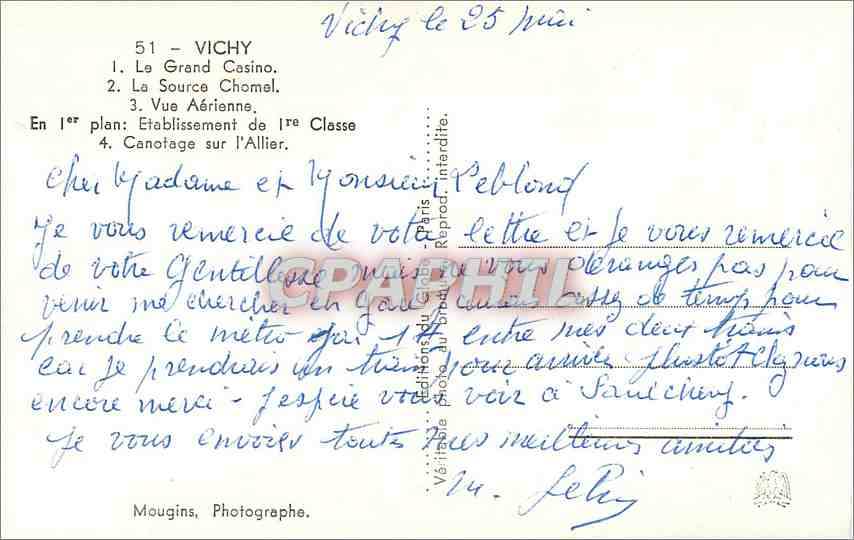 Vichy le 25 mai
51 – VICHY
1. Le Grand Casino.
2. La Source Chomel.
3. Vue Aérienne.
En 1er plan: Etablissement de 1re Classe
4. Canotage sur l'Allier.
Cher Madame et Monsieur Leblond
Je vous remercie de votre lettre et je vous remercie
de votre gentillesse mais ne vous déranges pas pour
venir me chercher en gare assez de temp pour
prendre le métro j'ai 1H entre mes deux trains
car je prendrais un train pour arriver plustôt
encore merci - J'espère vous voir à
Je vous envoies toutes mes meilleurs amitiés
M.
Editions du Globe - Paris
Véritable photo au bromure. Reprod. interdite.
CPAPHIL
Mougins, Photographe.